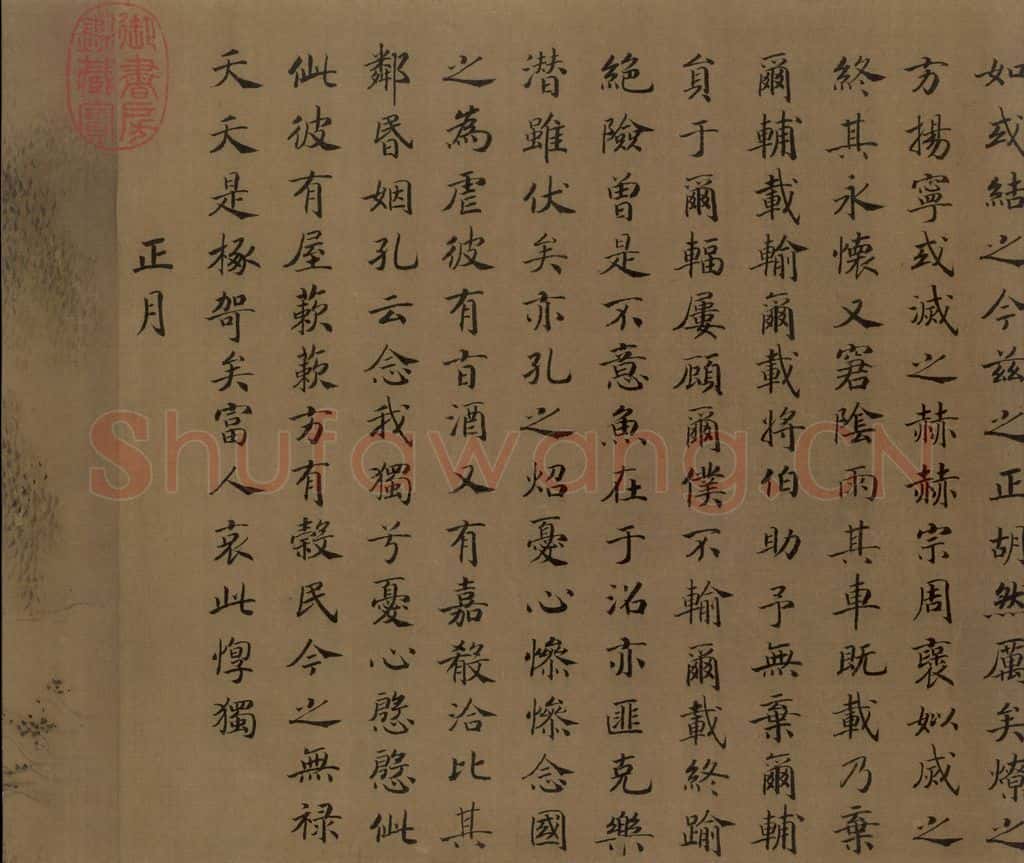 如或結之今兹之正胡然厲矣燎之
方揚寧或滅之赫赫宗周襃姒烕之
終其永懷又窘陰雨其車既載乃棄
爾輔載輸爾載將伯助予無棄爾輔
員于爾輻屢顧爾僕不輸爾載終踰
絶險曾是不意魚在于沼亦匪克樂
潜雖伏矣亦孔之炤憂心慘慘念國
之為虐彼有旨酒又有嘉殽洽比其
鄰昏姻孔云念我獨兮憂心慇慇佌
佌彼有屋蔌蔌方有穀民今之無禄
天夭是椓哿矣富人哀此惸獨
正月
御書房
鑑藏寶
Shufawang.CN